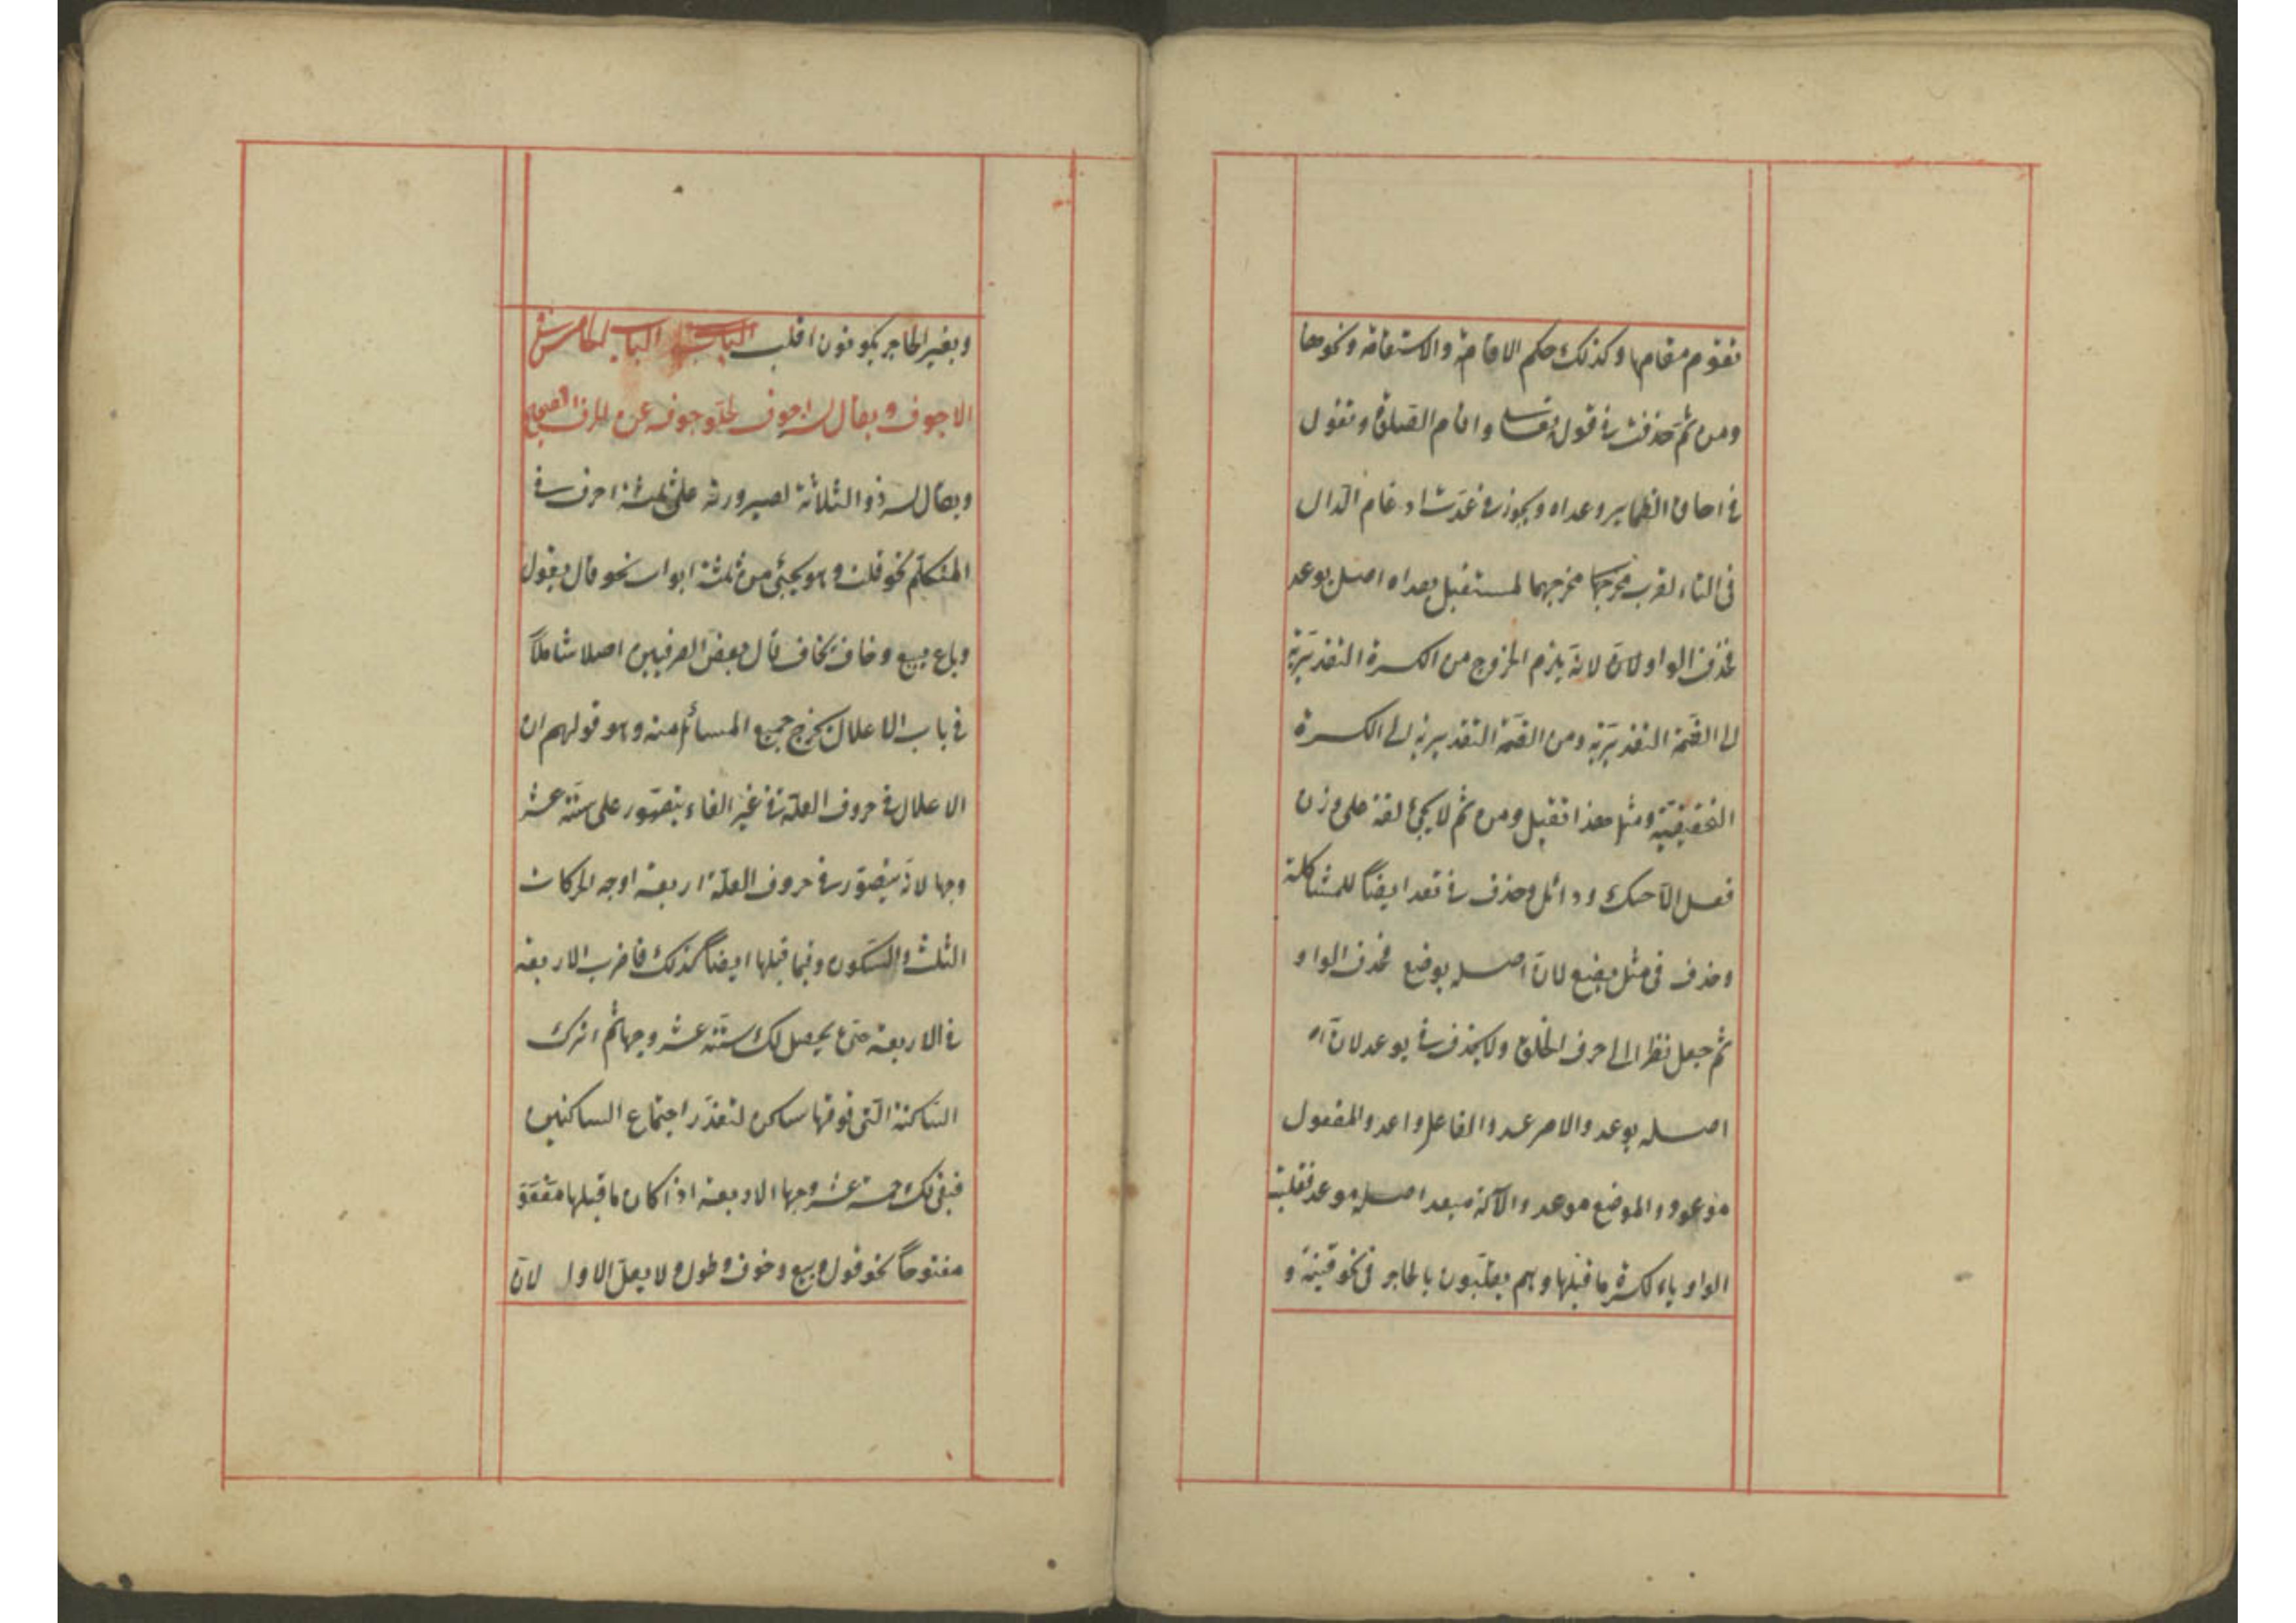 تقوم مقامها وكذلك حكم الاقامة والاستقامة ونحوهما
ومن ثم حذفت في قول تعالى واقام الصلوة وتقول
في احاق الضماير وعداه ويجوز في عدت ادغام الدال
في التاء لقرب مخرجها مخرجهما لمستقبل يعداه اصل يوعد
فحذف الواو لان لانه يلزم الخروج من الكسرة التقديرية
الى الضمة التقديرية ومن الضمة التقديرية الى الكسرة
التحقيقية ومثل هذا ثقيل ومن ثم لا يجئ لغة على وزن
فعل الا حبك ودائل وحذف في تعد ايضاً للمشاكلة
وحذف في مثل يضع لان اصله يوضع فحذف الواو
ثم جعل نظرا الى حرف الحلق ولا يحذف في يوعد لان
اصله يوعد والامر عد والفاعل واعد والمفعول
موعود والموضع موعد والآلة ميعد اصله موعد فقلبت
الواو ياء لكسرة ما قبلها وهم يقلبون بالحاجز في نحو قنية و
وبغير الحاجز يكونون اقلب الباب الباب الخامس في
الاجوف ويقال له اجوف لخلو جوفه عن الحرف الصحيح
ويقال له ذو الثلاثة لصيرورته على ثلثة احرف في
المتكلم نحو قلت وهو يجئ من ثلثة ابواب نحو قال يقول
وباع يبيع وخاف يخاف قال بعض الصرفيين اصلا شاملاً
في باب الاعلال يخرج جميع المسائل منه وهو قولهم ان
الاعلال في حروف العلة في غير الفاء يتصور على ستة عشر
وجها لانه يتصور في حروف العلة اربعة اوجه الحركات
الثلث والسكون وفيما قبلها ايضاً كذلك فاضرب الاربعة
في الاربعة حتى يحصل لك ستة عشر وجها ثم اترك
الساكنة التي فوقها ساكن لتعذر اجتماع الساكنين
فبقى لك خمسة عشر وجها الاربعة اذا كان ما قبلها
مفتوحاً نحو قول وبيع وخوف وطول ولا يعل الاول لان